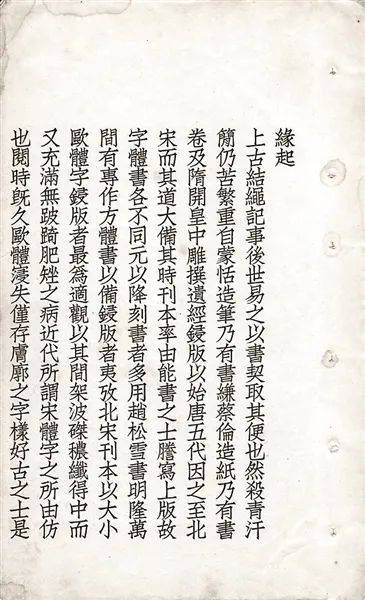 緣起
上古結繩記事後世易之以書契取其便也然殺青汗
簡仍苦繁重自蒙恬造筆乃有書縑蔡倫造紙乃有書
卷及隋開皇中雕撰遺經鋟版以始唐五代因之至北
宋而其道大備其時刊本率由能書之士謄寫上版故
字體書各不同元以降刻書者多用趙松雪書明隆萬
間有專作方體書以備鋟版者夷攷北宋刊本以大小
歐體字鋟版者最爲適觀以其間架波磔穠纖得中而
又充滿無跛踦肥矬之病近代所謂宋體字之所由仿
也閱時旣久歐體寖失僅存膚廓之字樣好古之士是